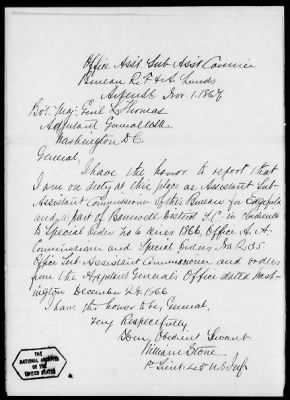 Office Ass't Sub Ass't Commr
Bureau R. F. & A. Lands
Nov. 1. 1867
Bvt. Maj. Genl L. Thomas
Adjutant General U.S.A.
Washington D.C.
General,
I have the honor to report that
I am on duty at this place as Assistant Sub
Assistant Commissioner of this Bureau for Edgefield
and a part of Barnwell District S.C. in obedience
to Special Orders No 6 series 1866, Office A. A.
Commissioner and Special Orders No 205
Office Sub Assistant Commissioner and orders
from the Adjutant General's Office dated Wash-
ington December 24, 1866
I have the honor to be, General,
Very Respectfully,
Your Obedient Servant
William Stone
1st Lieut. 45th U.S. Inf
THE
NATIONAL ARCHIVES
OF THE
UNITED STATES